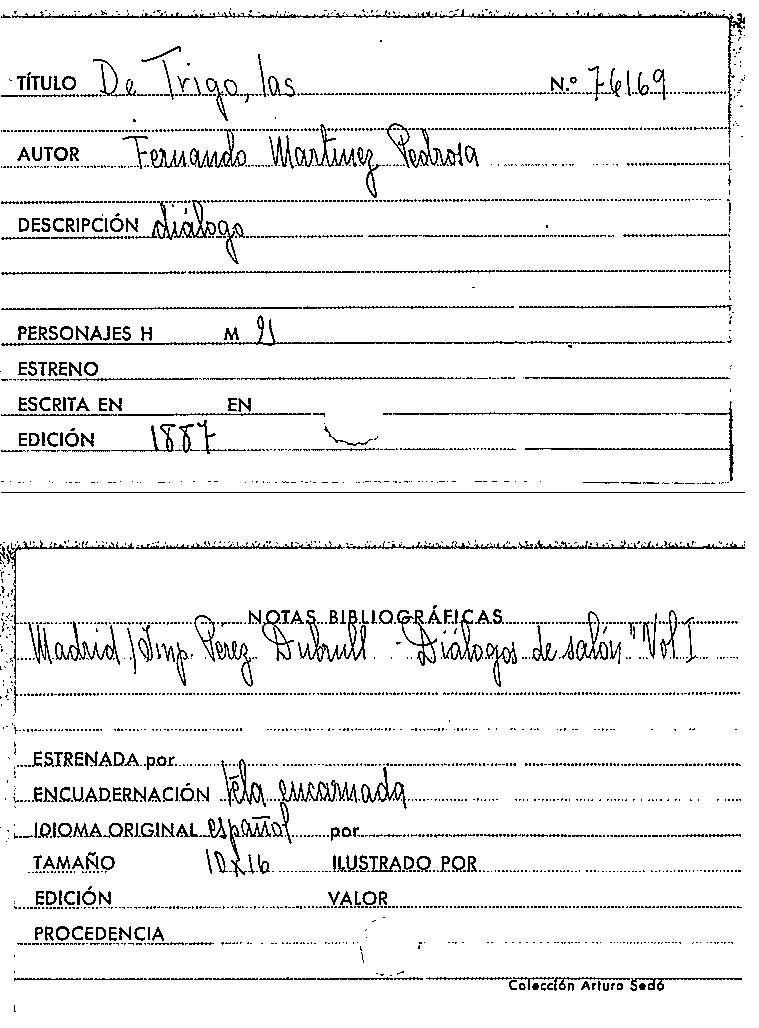 TÍTULO De Trigo, las N.º 76169
AUTOR Fernando Martinez Pedrosa
DESCRIPCIÓN diálogo
PERSONAJES H M
ESTRENO
ESCRITA EN EN
EDICIÓN 1887
NOTAS BIBLIOGRÁFICAS
Madrid / Imp. Pérez Dubrull - Diálogos de salón" Vol I
ESTRENADA por
ENCUADERNACIÓN tela encarnada
IDIOMA ORIGINAL español por
TAMAÑO 10x16 ILUSTRADO POR
EDICIÓN VALOR
PROCEDENCIA
Colección Arturo Sedó